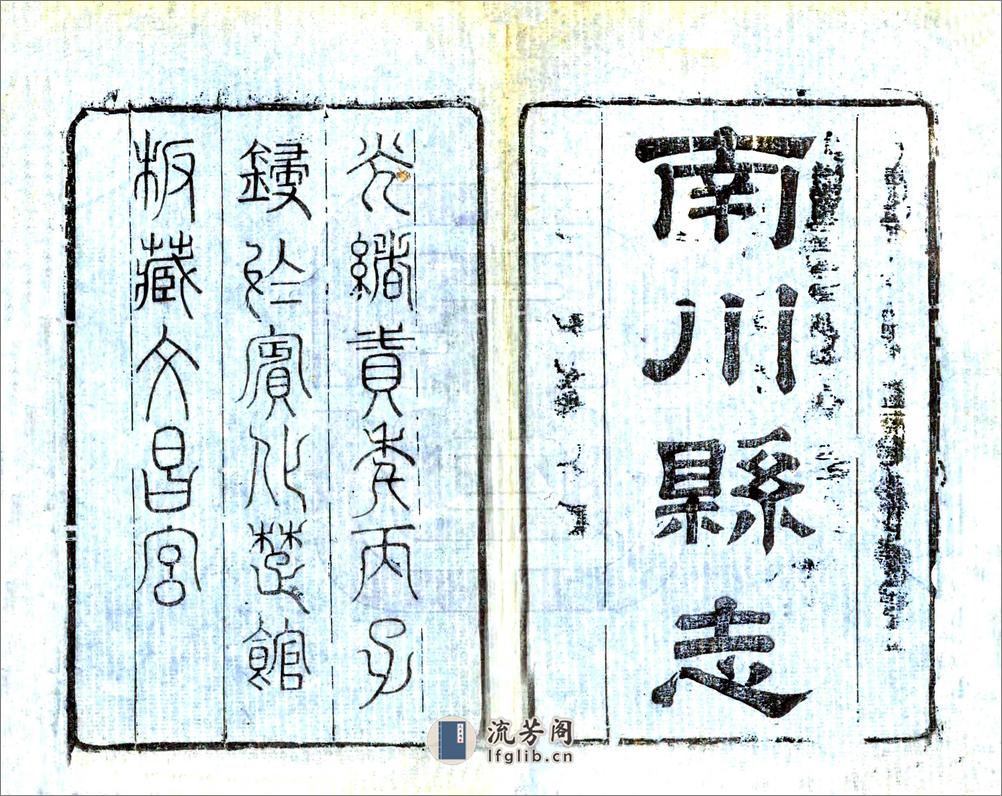 南川縣志
光緒貳年丙子
鋟於賓化楚館
板藏文昌宮
流芳阁
lfglib.cn